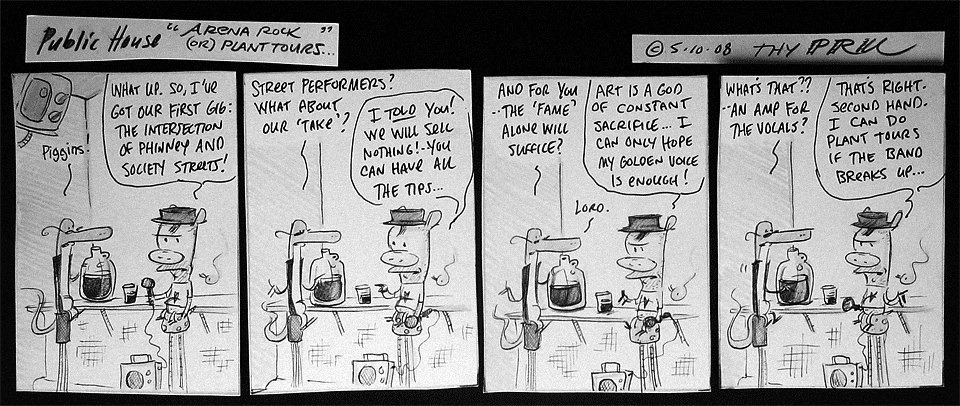 Public House "ARENA ROCK
(OR) PLANT TOURS... "
© 5·10·08 THY
Piggins.
WHAT UP. SO, I'VE
GOT OUR FIRST GIG:
THE INTERSECTION
OF PHINNEY AND
SOCIETY STREETS!
STREET PERFORMERS?
WHAT ABOUT
OUR 'TAKE'?
I TOLD YOU!
WE WILL SELL
NOTHING!-YOU
CAN HAVE ALL
THE TIPS...
AND FOR YOU
--THE 'FAME'
ALONE WILL
SUFFICE?
ART IS A GOD
OF CONSTANT
SACRIFICE... I
CAN ONLY HOPE
MY GOLDEN VOICE
IS ENOUGH!
LORD.
WHAT'S THAT??
--AN AMP FOR
THE VOCALS?
THAT'S RIGHT-
SECOND HAND.
I CAN DO
PLANT TOURS
IF THE BAND
BREAKS UP...